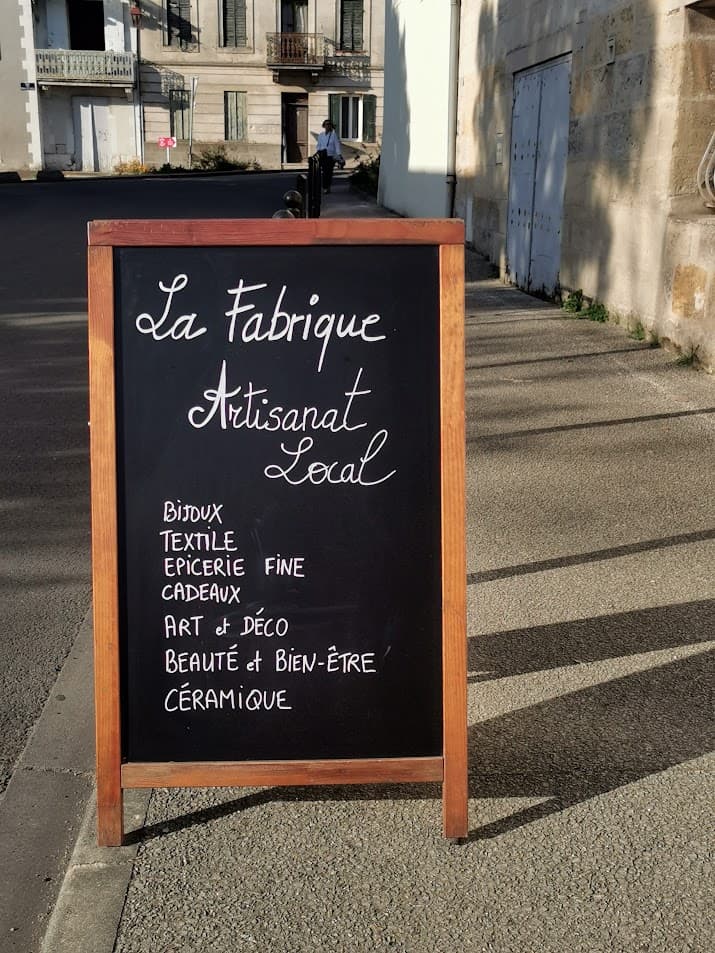 La Fabrique
Artisanat
Local
BiJOUX
TEXTiLE
EPiCERIE FiNE
CADEAUX
ART et DÉCO
BEAUTÉ et BiEN-ÊTRE
CÉRAMiQUE